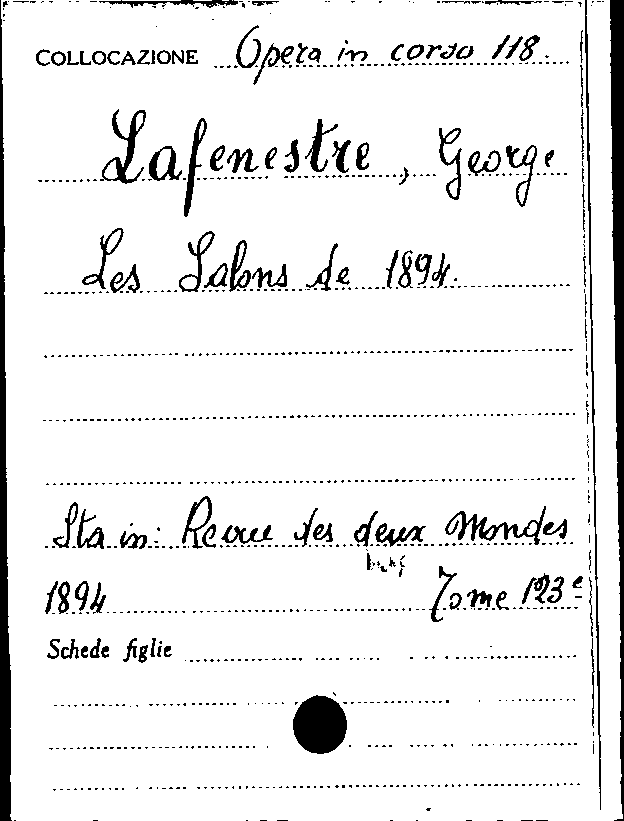 COLLOCAZIONE Opera in corso 118.
Lafenestre, George
Les Salons de 1894.
Sta in: Revue des deux Mondes
1894 Tome 123e
Schede figlie